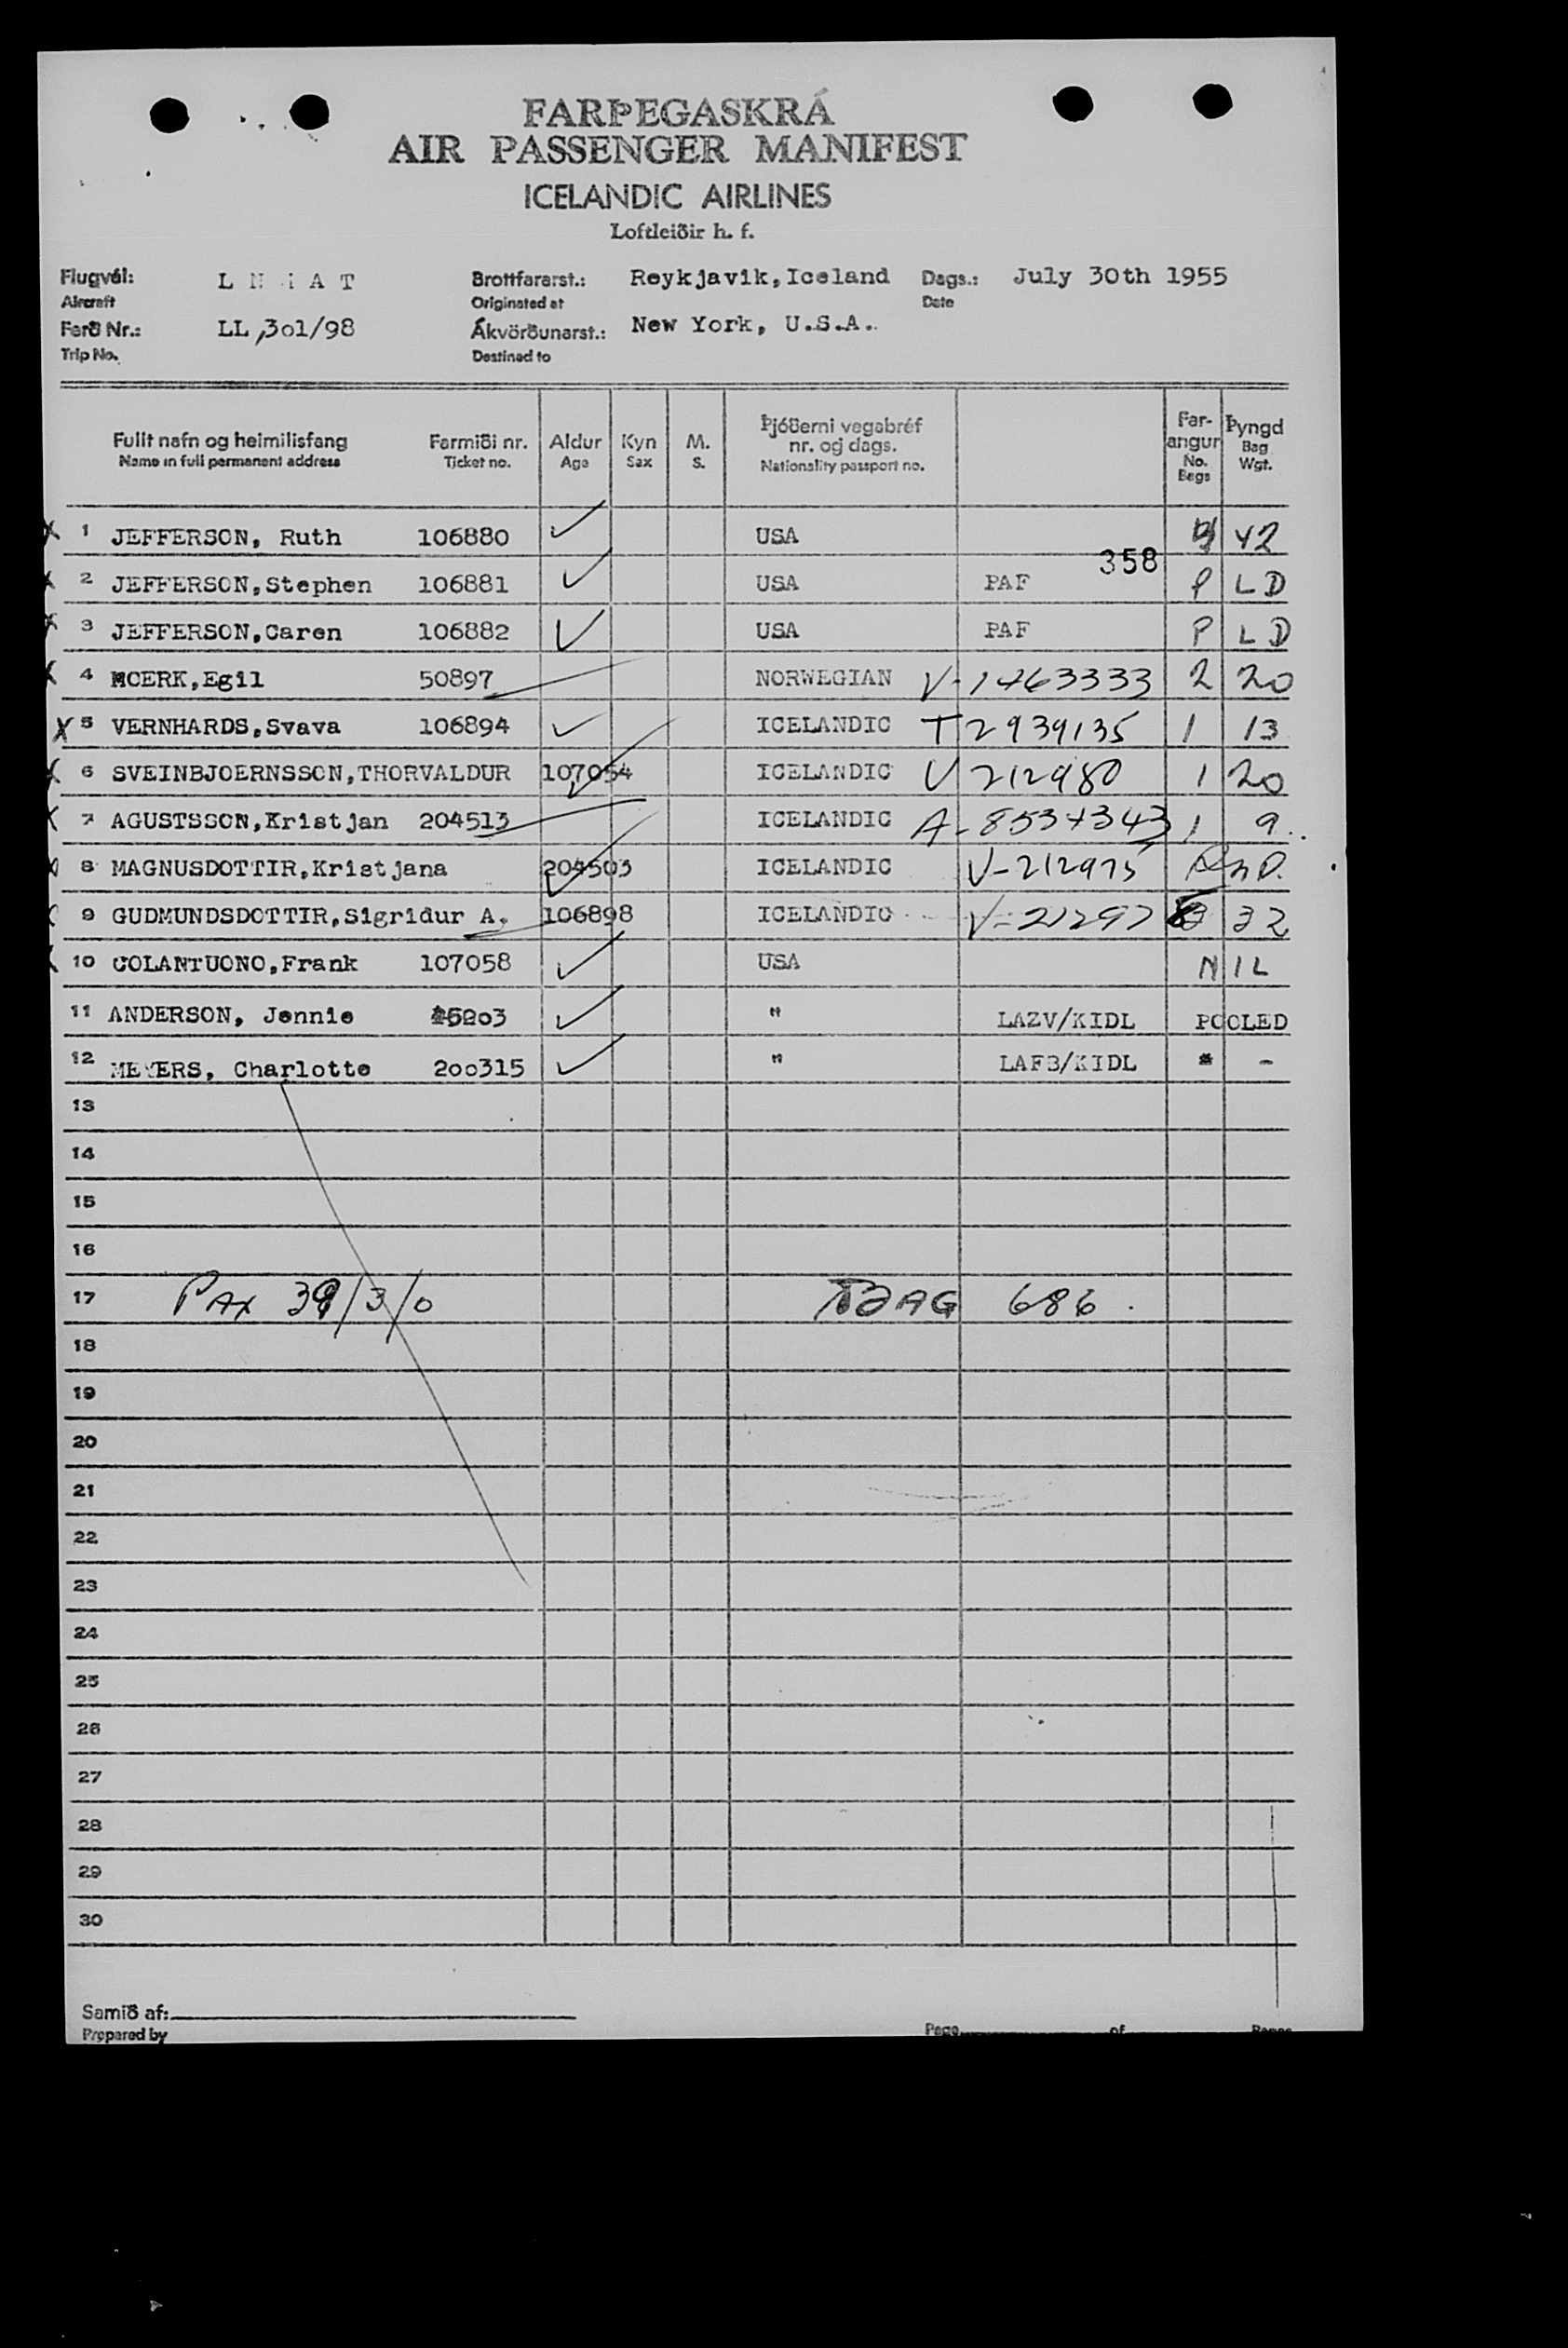 FARÞEGASKRÁ
AIR PASSENGER MANIFEST
ICELANDIC AIRLINES
Loftleiðir h. f.
Flugvél: L N A T Brottfararst.: Reykjavik, Iceland Dags.: July 30th 1955
Aircraft Originated at Date
Ferð Nr.: LL,3o1/98 Ákvörðunarst.: New York, U.S.A.
Trip No. Destined to
Fullt nafn og heimilisfang Farmiði nr. Aldur Kyn M. Þjóðerni vegabréf nr. og dags. Far-angur Þyngd
Name in full permanent address Ticket no. Age Sex S. Nationality passport no. No. Bags Bag Wgt.
1 JEFFERSON, Ruth 106880 USA 42
358
2 JEFFERSON,Stephen 106881 USA PAF P L D
3 JEFFERSON,Caren 106882 USA PAF P L D
4 MOERK,Egil 50897 NORWEGIAN V-1463333 2 20
5 VERNHARDS,Svava 106894 ICELANDIC T2939135 1 13
6 SVEINBJOERNSSON,THORVALDUR 107054 ICELANDIC V 212980 1 20
7 AGUSTSSON,Kristjan 204513 ICELANDIC 1 9
8 MAGNUSDOTTIR,Kristjana 204503 ICELANDIC V-212975
9 GUDMUNDSDOTTIR,Sigridur A. 106898 ICELANDIC 32
10 COLANTUONO,Frank 107058 USA NIL
11 ANDERSON, Jennie " LAZV/KIDL POOLED
12 MEYERS, Charlotte 2oo315 " LAFB/KIDL " -
13
14
15
16
17 PAX 39/3/0 BAG 686.
18
19
20
21
22
23
24
25
26
27
28
29
30
Samið af:
Prepared by Page of Pages